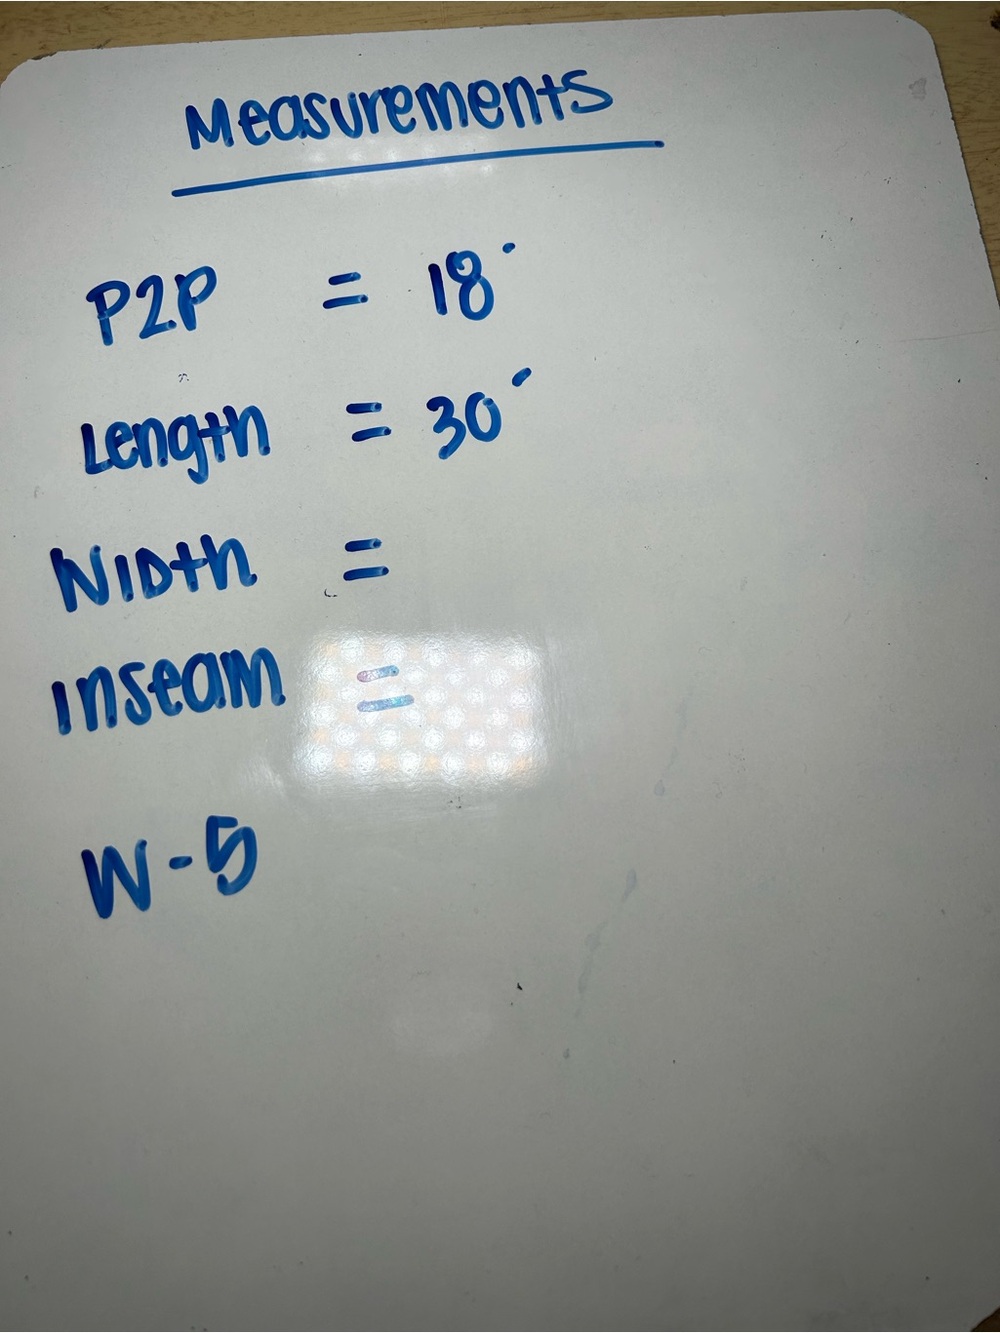 Measurements
P2P = 18"
Length = 30"
WIDth =
inseam =
W-5